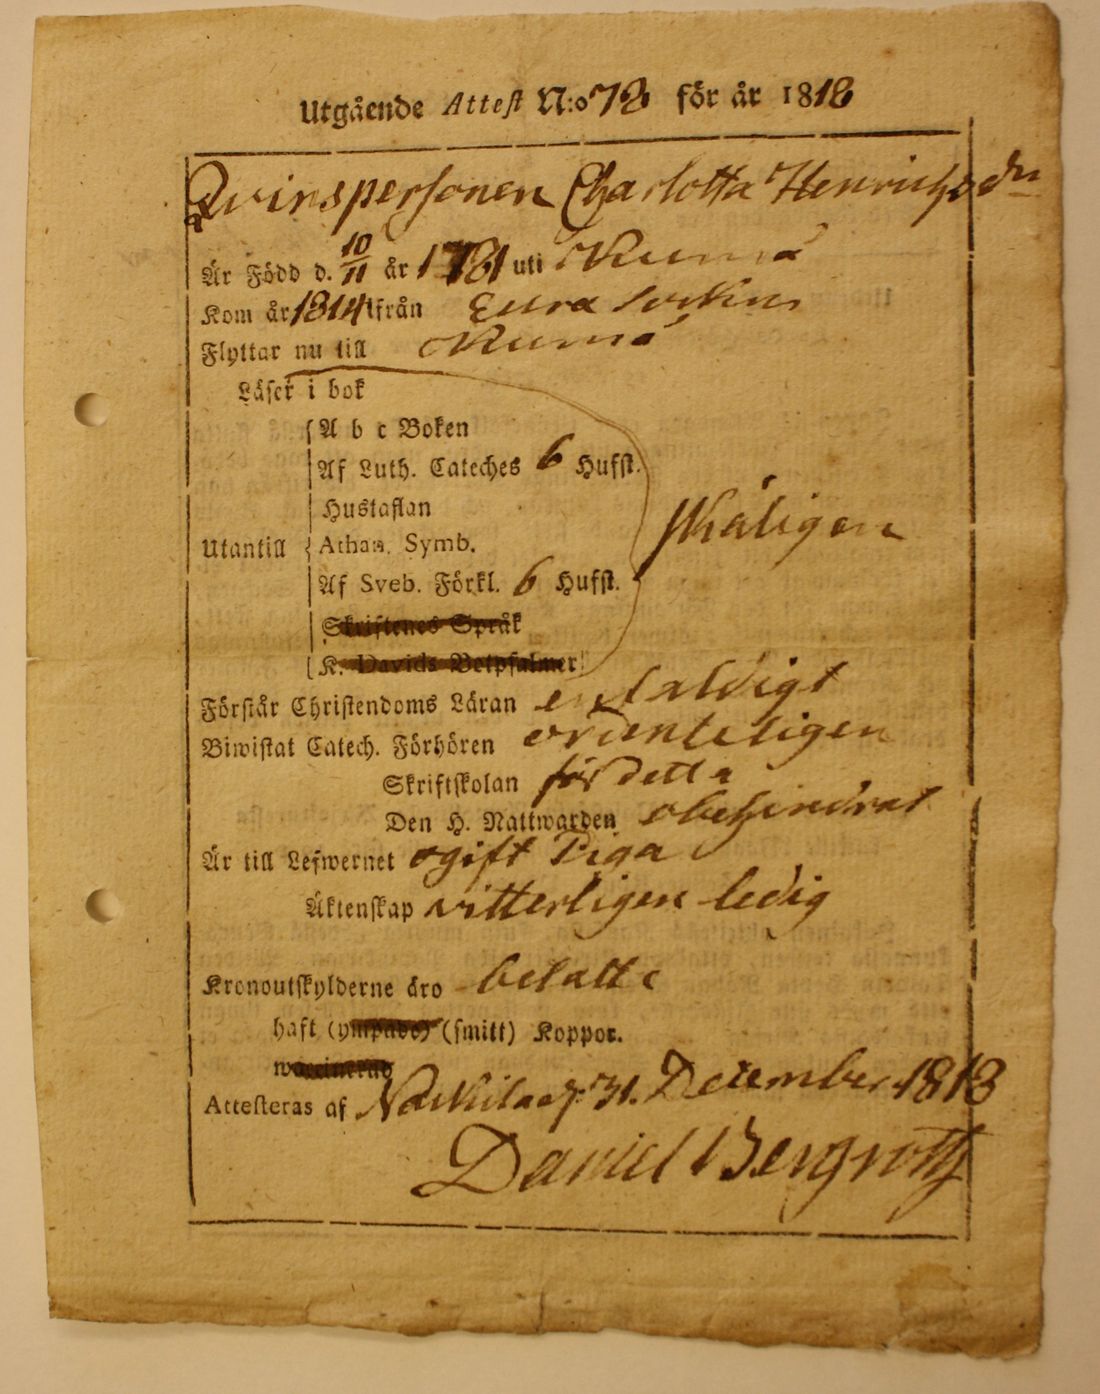 Utgående Attest N:o 78 för år 1818
Qvinspersonen Charlotta Henrichsdr
Är Född d. 10/11 år 1781 uti Raumå
Kom år 1814 ifrån Eura Sockn
Flyttar nu till Raumå
Läser i bok
A b c Boken
Af Luth. Cateches 6 Hufst.
Hustaflan
Utantill Athan. Symb. skäligen
Af Sveb. Förkl. 6 Hufst.
Skriftenes Språk
K. Davids Botpsalmer
Förstår Christendoms Läran enfaldigt
Biwistat Catech. Förhören ordenteligen
Skriftskolan för detta
Den H. Nattwarden obehindrat
Är till Lefwernet ogift Piga
Äktenskap vitterligen ledig
Kronoutskylderne äro betalte
haft (ympade) (smitt) Koppor.
waccinerad
Attesteras af 31. December 1818
Daniel Bergroth